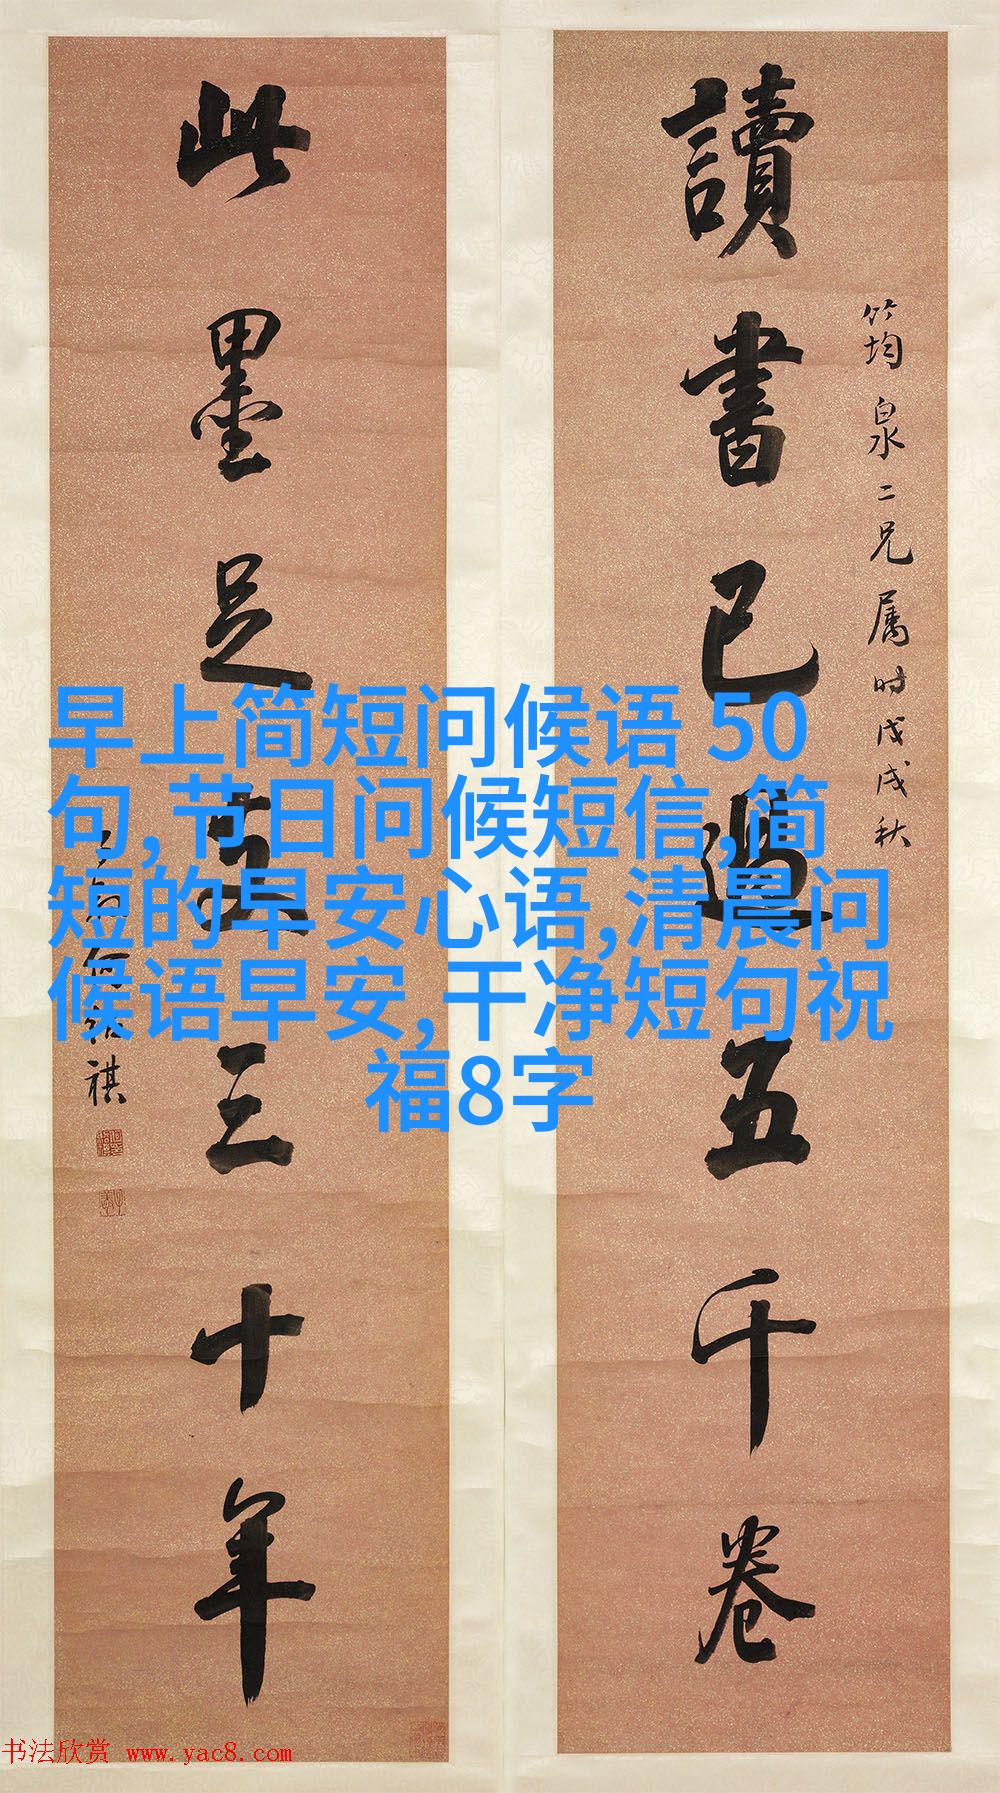 讀書已過五千卷
筠均泉二兄属时戊戌秋
此墨足支三十年
祺
早上简短问候语 50
句,节日问候短信,简
短的早安心语,清晨问
候语早安,干净短句祝
福8字
书法欣赏 www.yac8.com